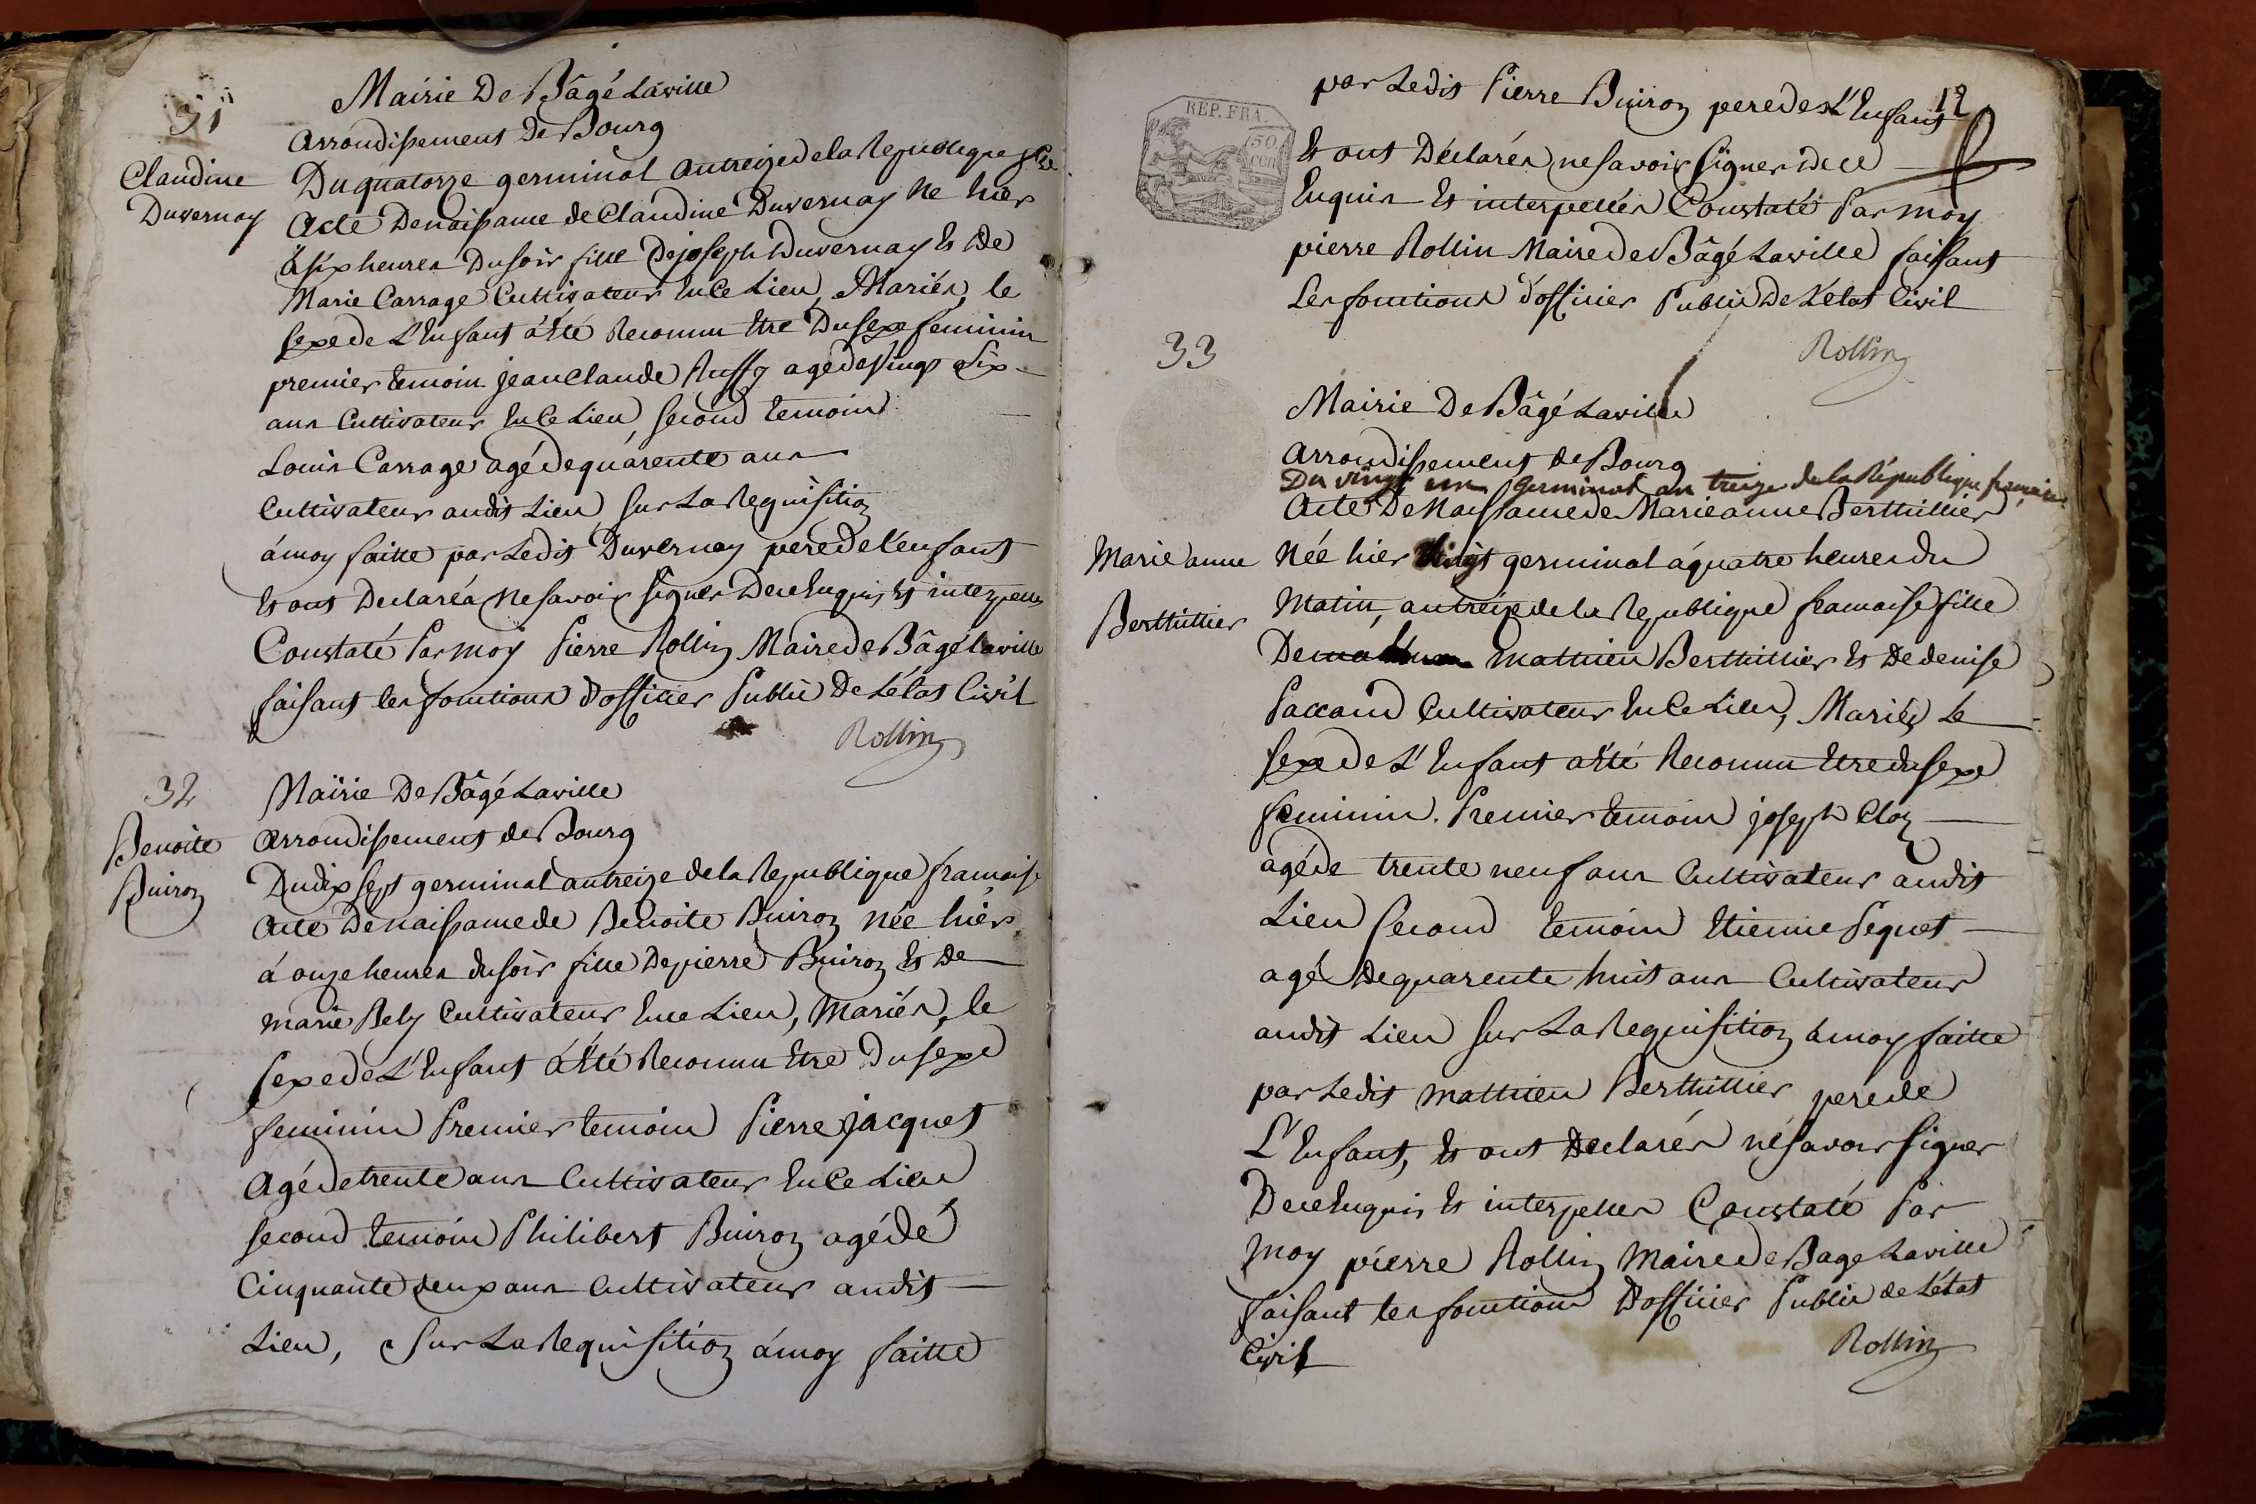 31
Mairie De Bâgé Laville
Arrondissement De Bourg
Claudine
Duvernay
Du quatorze germinal an treize de la Republique fse
Acte De naissance de Claudine Duvernay Né hier
à six heures Du soir fille De joseph Duvernay Et De
Marie Carrage Cultivateur En Ce Lieu, Mariés, le
sexe de L'Enfant a Eté Reconnu Etre Du sexe feminin
premier temoin jean Claude Ruffy agé de Vingt Six
ans Cultivateur En Ce Lieu, second temoin
Louis Carrage agé de quarente ans
Cultivateur audit Lieu, sur La Requisition
à moy faitte par Ledit Duvernay pere de L'enfant
Et ont Declarés Ne savoir signer De ce Enquis Et interpellés
Constaté Par moy Pierre Rollin Maire de Bâgé Laville
faisant les fonctions d'officier Public De L'état Civil
Rollin
32
Benoite
Buiron
Mairie De Bâgé Laville
Arrondissement de Bourg
Du dix sept germinal an treize de la Republique francaise
Acte De naissance de Benoite Buiron née hier
à onze heures du soir fille De pierre Buiron Et De
marie Bely Cultivateur En ce Lieu, Mariés, le
sexe de L'Enfant a Eté Reconnu Etre Du sexe
feminin Premier temoin Pierre jacquet
Agé de trente ans Cultivateur En Ce Lieu
second temoin Philibert Buiron agé de
Cinquante deux ans Cultivateur audit
Lieu, Sur La Requisition à moy faitte
12
REP. FRA.
50
CEN
par Ledit Pierre Buiron pere de L'Enfant
Et ont Déclarés ne savoir signer de ce
Enquis Et interpellés Constaté Par moy
pierre Rollin Maire de Bâgé Laville faisant
Les fonctions d'officier Public De L'état Civil
Rollin
33
Mairie De Bâgé Laville
Arrondissement de Bourg
Du vingt un Germinal an treize de la République française
Acte De Naissance de Marie anne Berthillier
Marie anne
Berthillier
Née hier Vingt germinal à quatre heures du
Matin, an treize de la Republique francaise fille
De mathieu Berthillier Et De denise
Paccard Cultivateur En Ce Lieu, Mariés Le
sexe de L'Enfant a Eté Reconnu Etre du sexe
feminin. Premier temoin joseph Cloy
agé de trente neuf ans Cultivateur audit
Lieu second temoin Etienne Pequet
agé De quarente huit ans Cultivateur
audit Lieu sur La Requisition à moy faitte
par Ledit mathieu Berthillier pere de
L'Enfant, Et ont Declarés ne savoir signer
De ce Enquis Et interpellés Constaté Par
moy pierre Rollin Maire de Bage Laville
faisant les fonctions D'officier Public de L'état
Civil
Rollin